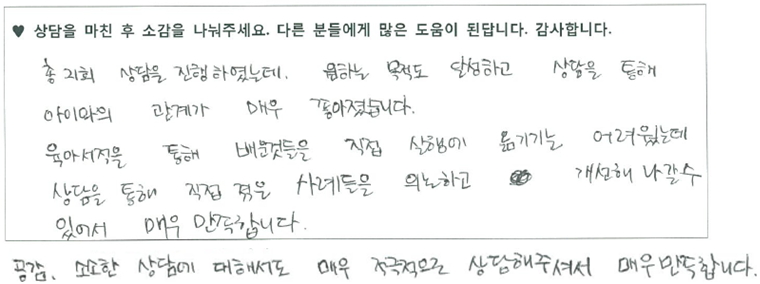 ♥ 상담을 마친 후 소감을 나눠주세요. 다른 분들에게 많은 도움이 된답니다. 감사합니다.
총 지회 상담을 진행하였는데. 원하는 목적도 달성하고 상담을 통해
아이와의 관계가 매우 좋아졌습니다.
육아서적을 통해 배운것들을 직접 실행에 옮기기는 어려웠는데
상담을 통해 직접 겪은 사례들을 의논하고 개선해 나갈수
있어서 매우 만족합니다.
공감. 소소한 상담에 대해서도 매우 적극적으로 상담해주셔서 매우만족합니다.